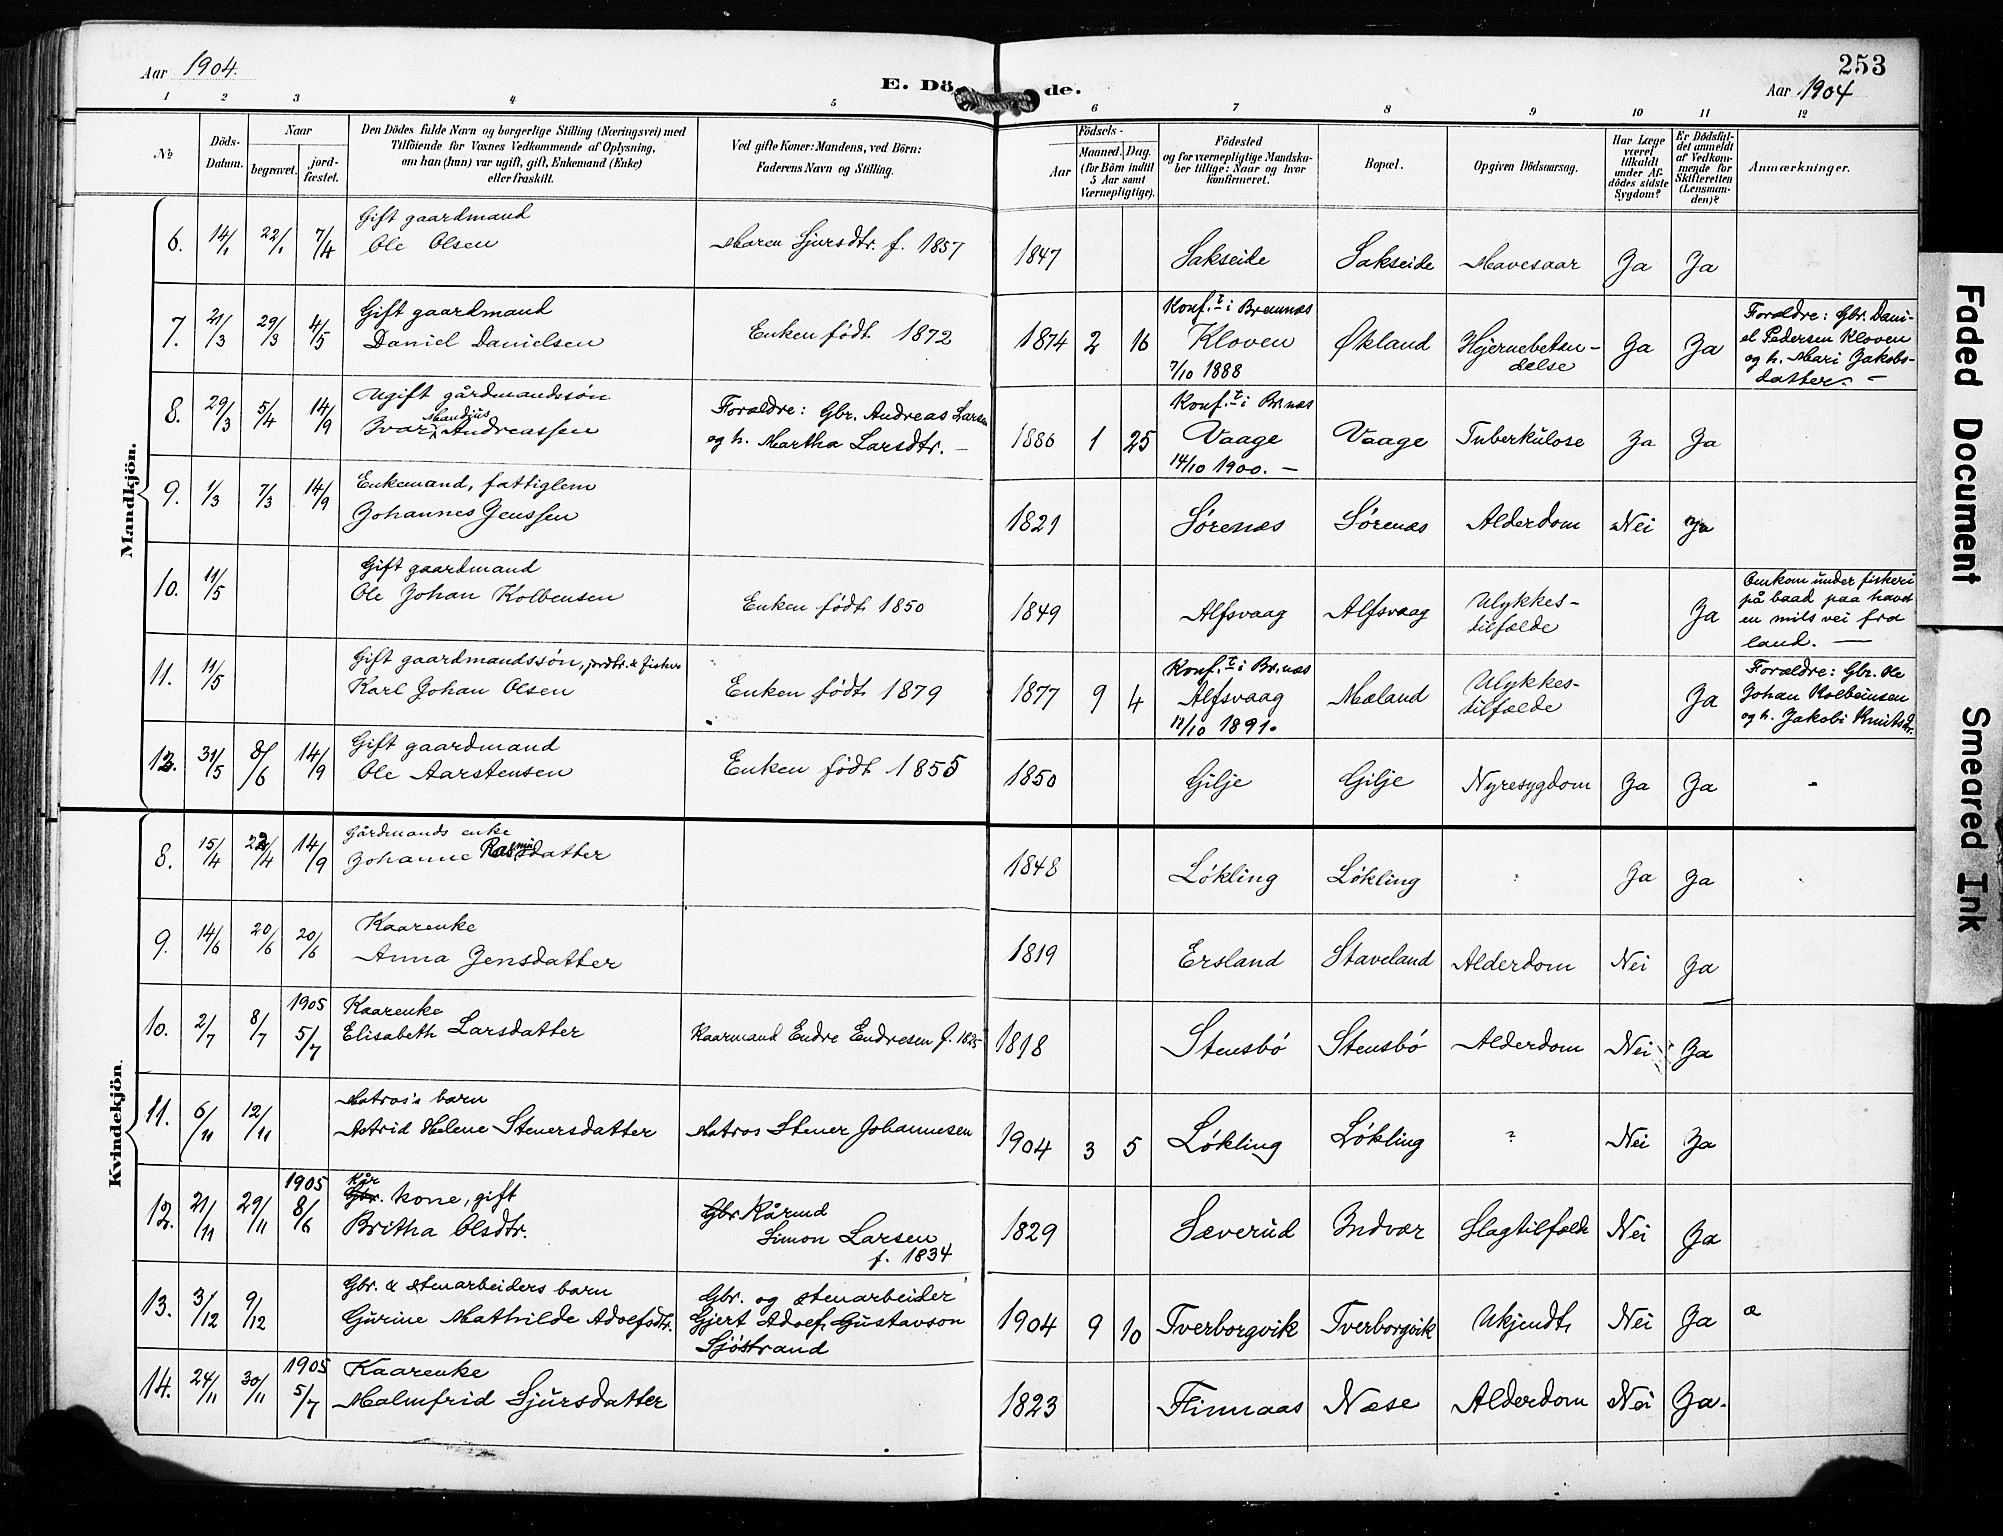 Aar 1904.
E. Dö de.
253
Aar 1904
1 2 3 4 5 6 7 8 9 10 11 12
No
Döds-Datum.
Naar
begravet.
jord-fæstet.
Den Dödes fulde Navn og borgerlige Stilling (Næringsvei) med
Tilföiende for Voxnes Vedkommende af Oplysning,
om han (hun) var ugift, gift, Enkemand (Enke)
eller fraskilt.
Ved gifte Koner: Mandens, ved Börn:
Faderens Navn og Stilling.
Födsels-
Aar
Maaned. Dag.
(for Börn indtil
5 Aar samt
Værnepligtige).
Födested
og for værnepligtige Mandska-
ber tillige: Naar og hvor
konfirmeret.
Bopæl.
Opgiven Dödsaarsag.
Har Læge
været
tilkaldt
under Af-
dödes sidste
Sygdom?
Er Dödsfal-
det anmeldt
af Vedkom-
mende for
Skifteretten
(Lensman-
den)?
Anmærkninger.
Mandkjön.
6. 14/1 22/1 7/4 Gift gaardmand
Ole Olsen Maren Sjursdtr. f. 1857 1847 Sakseide Sakseide Mavesaar Ja Ja
7. 21/3 29/3 4/5 Gift gaardmand
Daniel Danielsen Enken født 1872 1874 2 16 Konf. i Bremnæs
Kloven
7/10 1888 Økland Hjernebetæn-
delse Ja Ja Forældre: Gbr. Dani-
el Pedersen Kloven
og h. Mari Jakobs-
datter. –
8. 29/3 5/4 14/9 Ugift gårdmandssøn
Ivar Mandius Andreassen Forældre: Gbr. Andreas Larsen
og h. Martha Larsdtr. – 1886 1 25 Konf. i Br.næs
Vaage
14/10 1900. – Vaage Tuberkulose Ja Ja
9. 1/3 7/3 14/9 Enkemand, fattiglem
Johannes Jenssen 1821 Sørenæs Sørenæs Alderdom Nei Ja
10. 11/5 Gift gaardmand
Ole Johan Kolbensen Enken født 1850 1849 Alfsvaag Alfsvaag Ulykkes-
tilfælde Ja Omkom under fiskeri
på baad paa havet
en mils vei fra
land. –
11. 11/5 Gift gaardmandssøn, jordbr. & fisker
Karl Johan Olsen Enken født 1879 1877 9 4 Konf. i Br.næs
Alfsvaag
11/10 1891. Mæland Ulykkes-
tilfælde Ja Forældre: Gbr. Ole
Johan Kolbeinsen
og h. Jakobi Knutsdtr.
12. 31/5 8/6 14/9 Gift gaardmand
Ole Aarstensen Enken født 1855 1850 Gilje Gilje Nyresygdom Ja Ja
Kvindekjön.
8. 15/4 22/4 14/9 Gårdmands enke
Johanne Rasmusdatter 1848 Løkling Løkling Ja Ja
9. 14/6 20/6 20/6 Kaarenke
Anna Jensdatter 1819 Ersland Staveland Alderdom Nei Ja
10. 2/7 8/7 1905 5/7 Kaarenke
Elisabeth Larsdatter Kaarmand Endre Endresen f. 1825 1818 Stensbø Stensbø Alderdom Nei Ja
11. 6/11 12/11 Matros's barn
Astrid Helene Stenersdatter Matros Stener Johannesen 1904 3 5 Løkling Løkling ? Nei Ja
12. 21/11 29/11 1905 8/6 Kår
Gbr. kone, gift
Britha Olsdtr. Gbr Kårmd
Simon Larsen
f. 1834 1829 Sæverud Indvær Slagtilfælde Nei Ja
13. 3/12 9/12 Gbr. & stenarbeiders barn
Gurine Mathilde Adolfsdtr. Gbr. og stenarbeider
Gjert Adolf Gustavson
Sjøstrand 1904 9 10 Tverborgvik Tverborgvik Ukjendt Nei Ja
14. 24/11 30/11 1905 5/7 Kaarenke
Malmfrid Sjursdatter 1823 Finnaas Næse Alderdom Nei Ja.
Faded Document
Smeared Ink